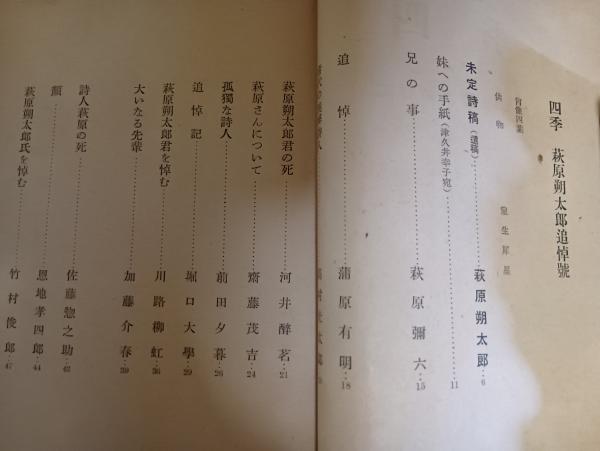 四季 萩原朔太郎追悼號
肖像四葉
供物 室生犀星
未定詩稿(遺稿)………萩原朔太郎…6
妹への手紙(津久井幸子宛)………11
兄の事………萩原彌六…15
追悼………蒲原有明…18
萩原朔太郎君の死………河井醉茗…21
萩原さんについて………齋藤茂吉…24
孤獨な詩人………前田夕暮…26
追悼記………堀口大學…29
萩原朔太郎君を悼む………川路柳虹…36
大いなる先輩………加藤介春…39
詩人萩原の死………佐藤惣之助…42
顏………恩地孝四郎…44
萩原朔太郎氏を悼む………竹村俊郎…47